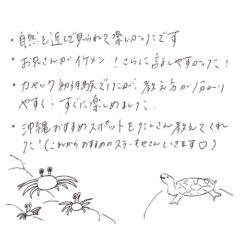 ・自然を近くで見られて楽しかったです
・お兄さんがイケメン！さらに話しやすかった！
・カヤック初体験でしたが、教え方が分かり
やすく、すぐに楽しめました。
・沖縄おすすめスポットをたくさん教えてくれ
た！（これからおすすめのステーキやさんいきます♡）